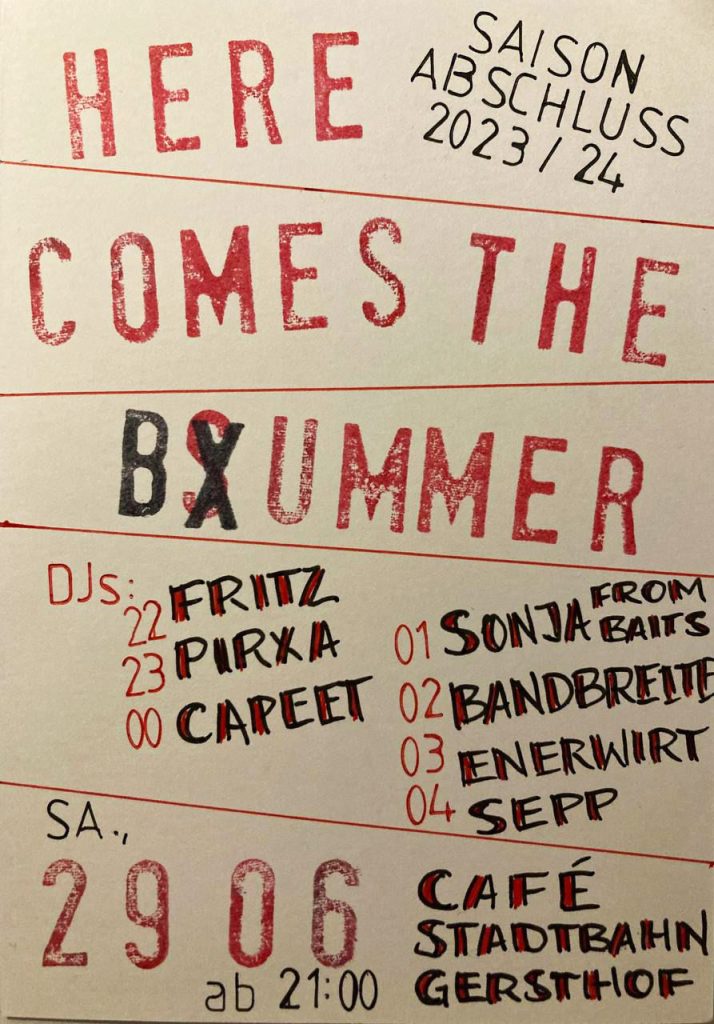 HERE
SAISON
ABSCHLUSS
2023/24
COMES THE
BSUMMER
DJs:
22 FRITZ
23 PIRXA
00 CAPEET
01 SONJA FROM BAITS
02 BANDBREITE
03 ENERWIRT
04 SEPP
SA.,
29 06
ab 21:00
CAFÉ
STADTBAHN
GERSTHOF